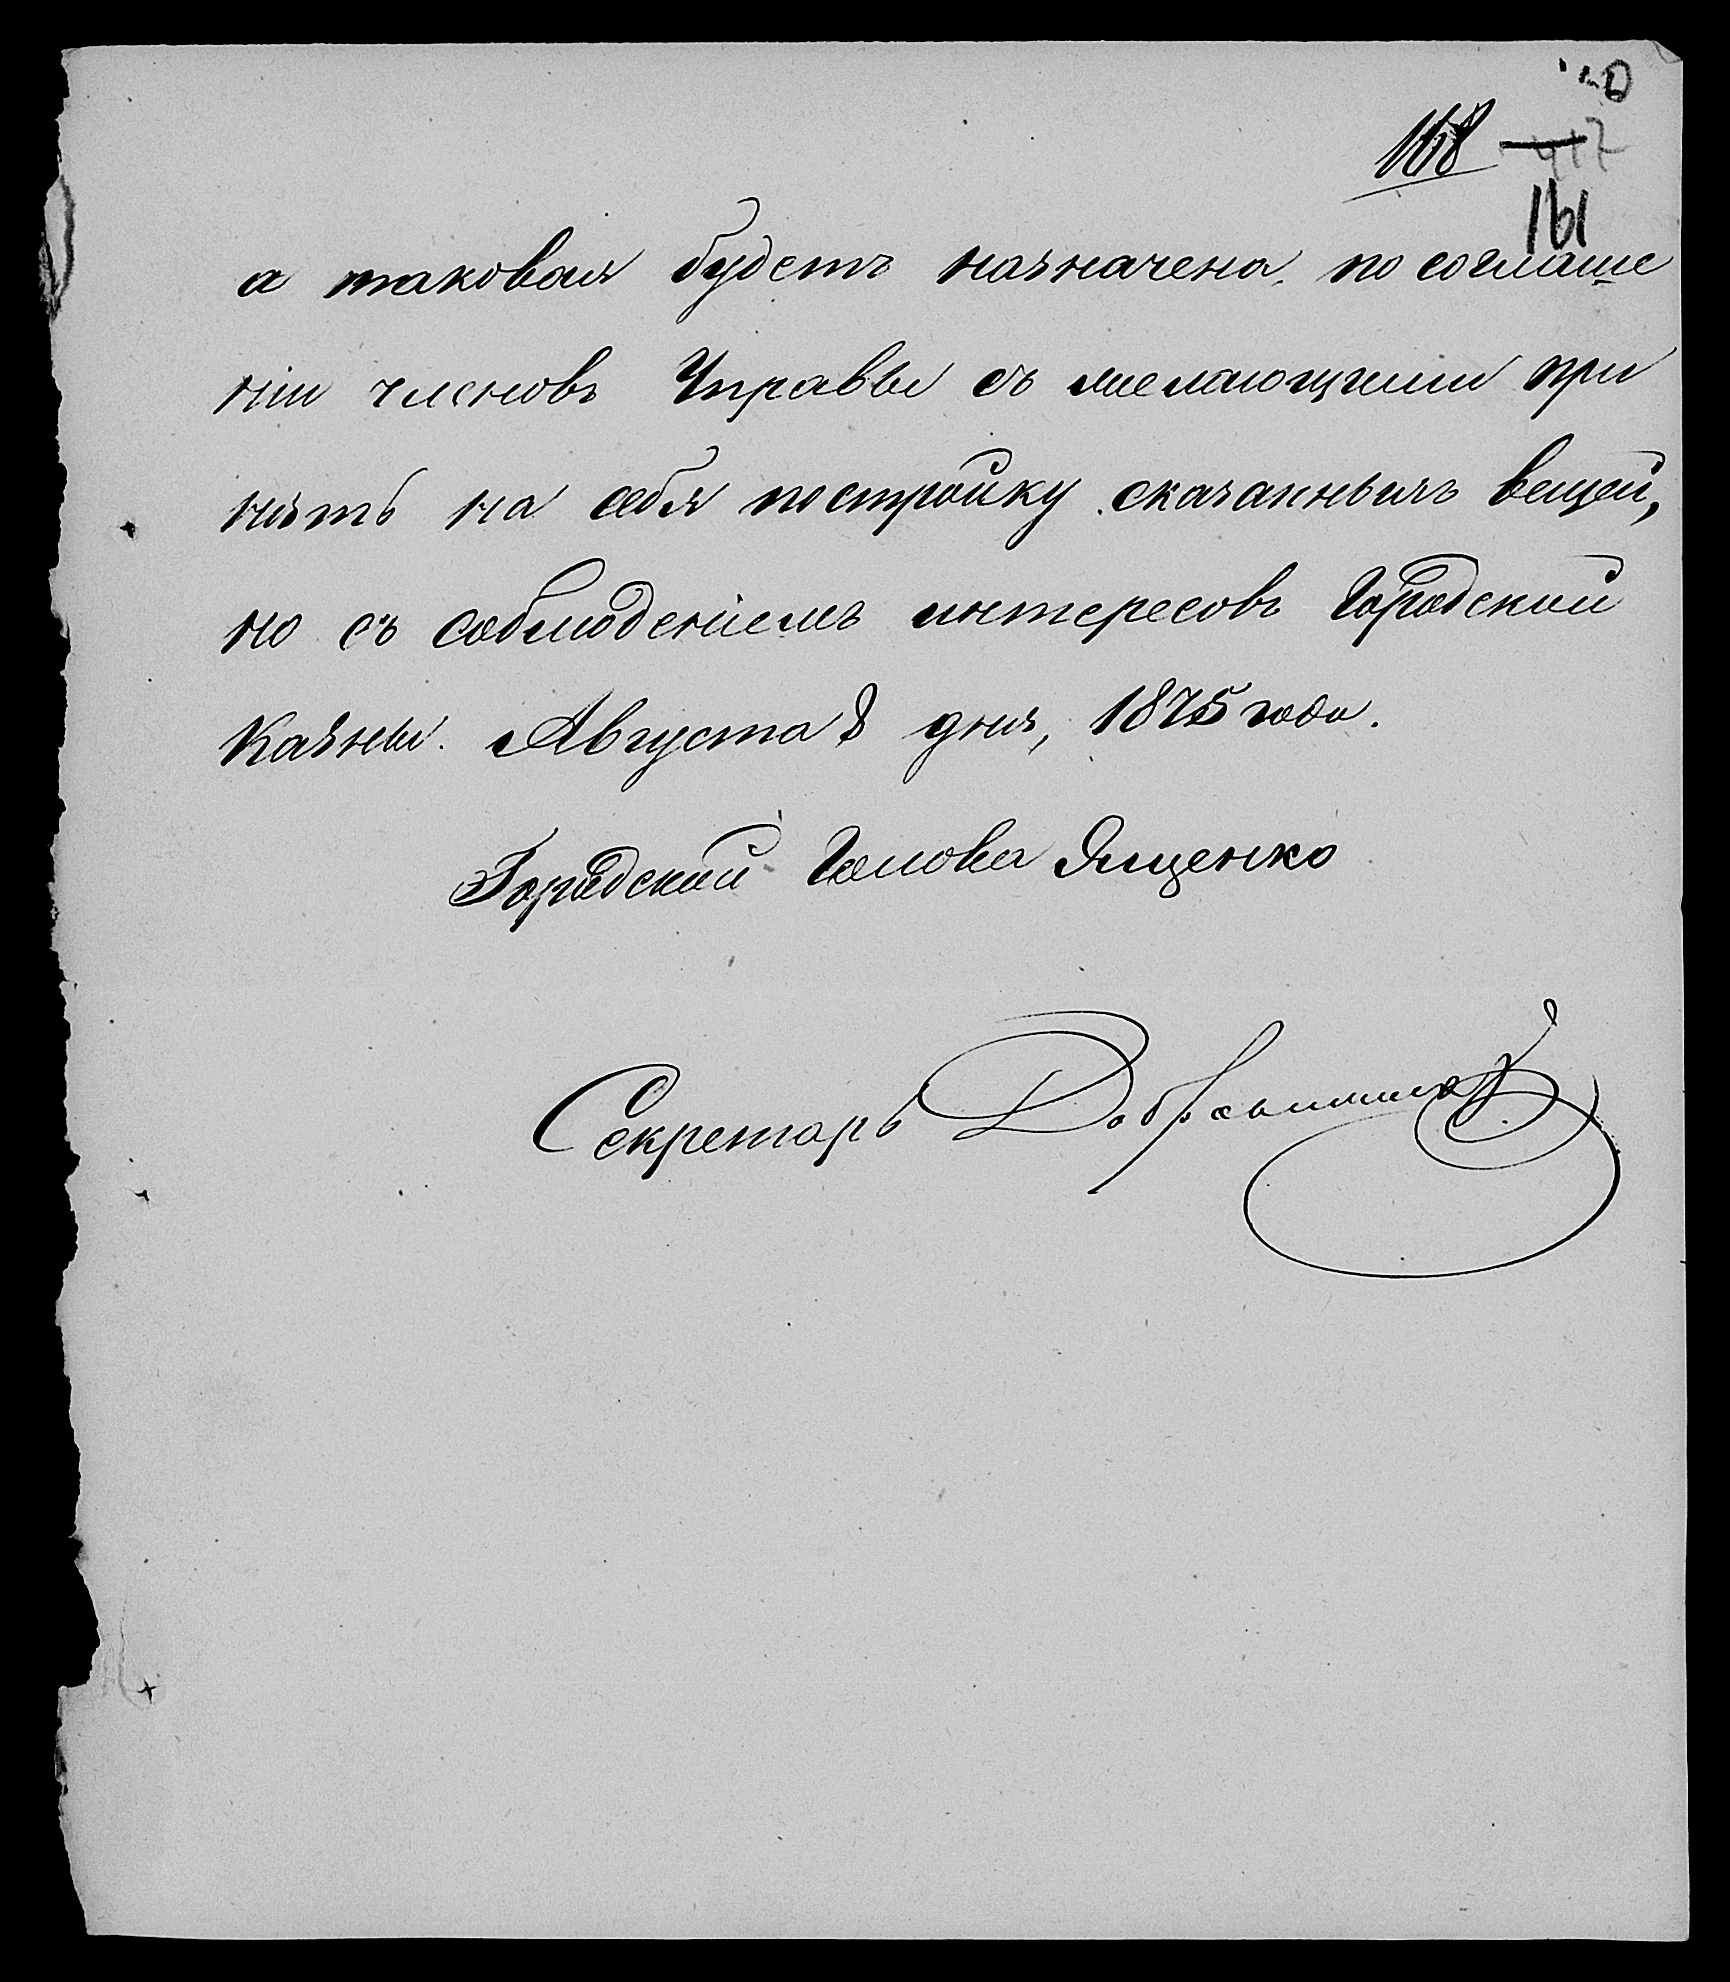 168
161
а таковая будетъ назначена, по соглаше
нiи членовъ Управы съ желающими при
нять на себя постройку сказанныхъ вещей,
но съ соблюденiемъ интересовъ Городской
Казны. Августа 8 дня, 1875 года.
Городской Голова Ященко
Секретарь